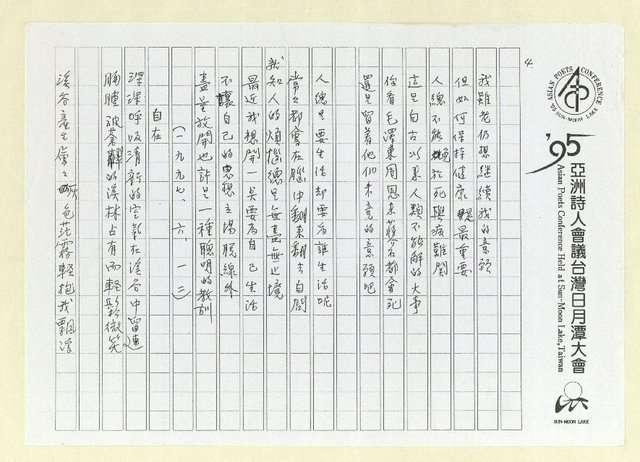 4.
我雖老仍想繼續我的意願
但如何保持健康 最重要
人總不能 於死與病難關
這是自古以來人類不能解的大事
你看毛澤東周恩來蔣介石都會死
還是留着他们未竟的意願吧
人總是要生活却要為誰生活呢
常々都會在腦中翻來翻去自問
我知人的煩惱總是無盡無止境
最近我想開一點要為自己生活
不讓自己的思想立場脫線外
盡量放開也許是一種聰明的教訓
(一九九七、六、一三)
自在
深深呼吸清新的空氣在溪谷中留連
腼腆被蒼 的溪林占有而輕鬆微笑
溪谷 常々 色茫霧輕抱我飄浮
ASIAN POETS CONFERENCE
'95 SUN-MOON LAKE
'95 亞洲詩人會議台灣日月潭大會
Asian Poets Conference Held at Sun-Moon Lake, Taiwan
SUN-MOON LAKE